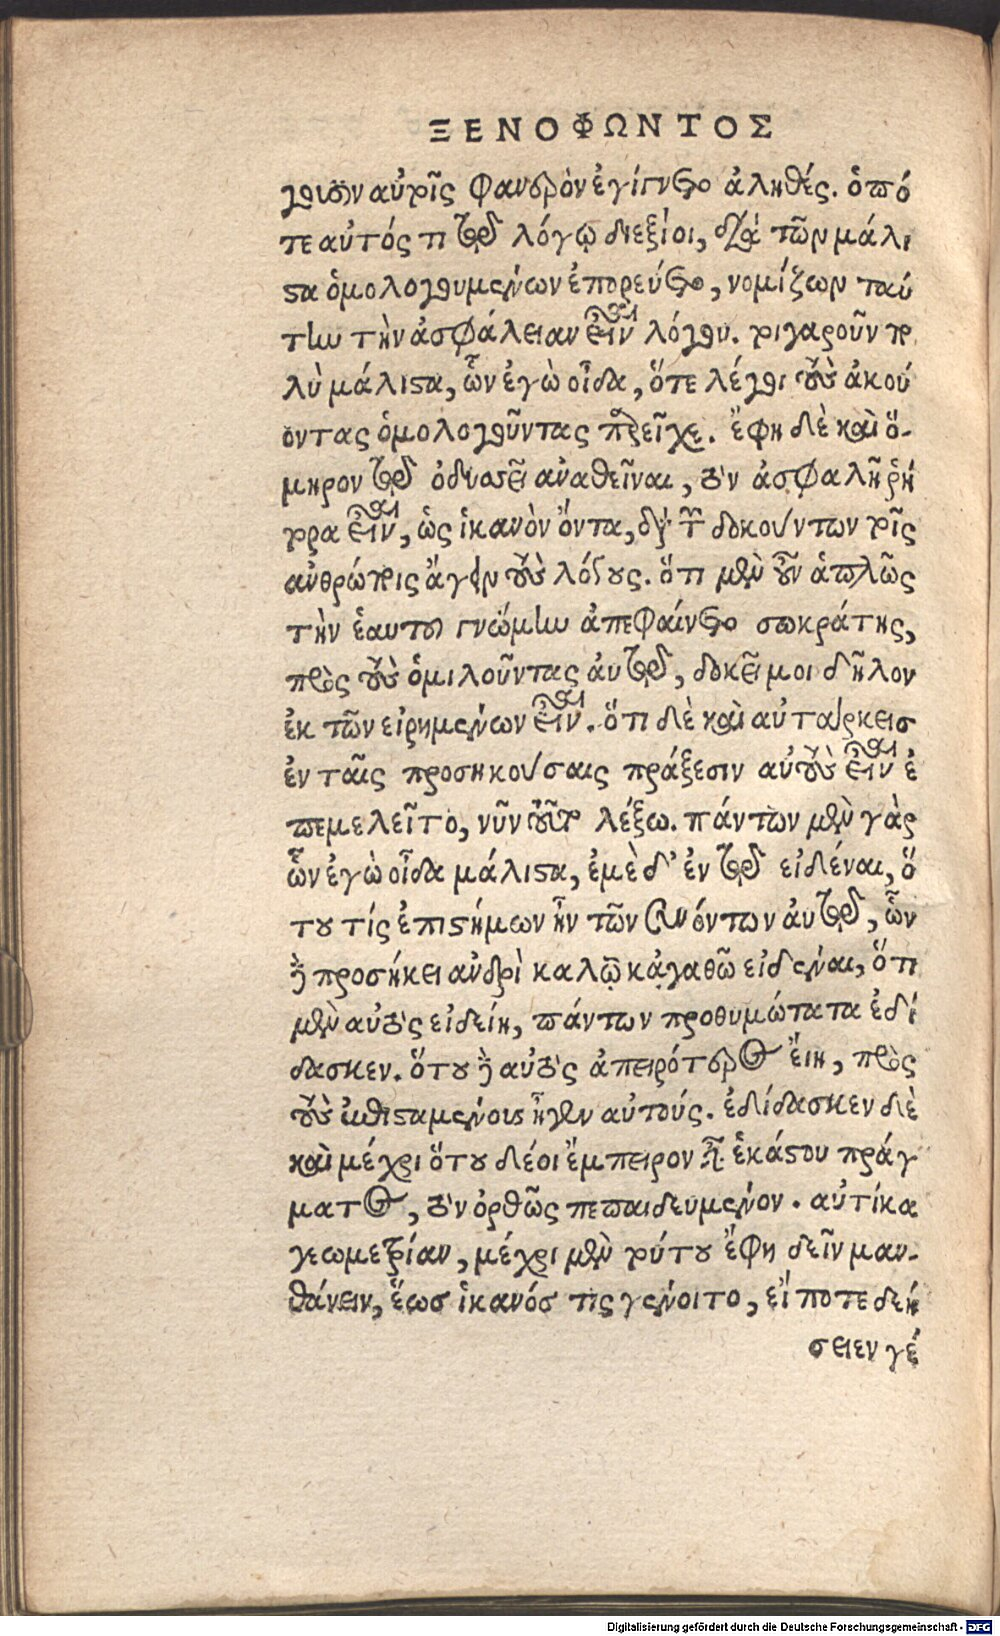 ΞΕΝΟΦΩΝΤΟΣ
γουσιν αὐτοῖς φανερὸν ἐγίγνετο ἀληθές. ὁπό
τε αὐτός τι τῷ λόγῳ διεξίοι, διὰ τῶν μάλι
στα ὁμολογουμένων ἐπορεύετο, νομίζων ταύ
την τὴν ἀσφάλειαν εἶναι λόγου. τοιγαροῦν πο
λὺ μάλιστα, ὧν ἐγὼ οἶδα, ὅτε λέγοι τοὺς ἀκού
οντας ὁμολογοῦντας παρεῖχε. ἔφη δὲ καὶ ὅ-
μηρον τῷ ὀδυσσεῖ ἀναθεῖναι, τὸν ἀσφαλῆ ῥή
τορα εἶναι, ὡς ἱκανὸν ὄντα, διὰ τῶν δοκούντων τοῖς
ἀνθρώποις ἄγειν τοὺς λόγους. ὅτι μὲν οὖν ἁπλῶς
τὴν ἑαυτοῦ γνώμην ἀπεφαίνετο σωκράτης,
πρὸς τοὺς ὁμιλοῦντας αὐτῷ, δοκεῖ μοι δῆλον
ἐκ τῶν εἰρημένων εἶναι. ὅτι δὲ καὶ αὐτάρκεισ
ἐν ταῖς προσηκούσαις πράξεσιν αὐτοὺς εἶναι ἐ
πεμελεῖτο, νῦν τοῦτο λέξω. πάντων μὲν γὰρ
ὧν ἐγὼ οἶδα μάλιστα, ἐμὲ δ' ἐν τῷ εἰδέναι, ὅ
του τίς ἐπιστήμων ἦν τῶν συνόντων αὐτῷ, ὧν
δὲ προσήκει ἀνδρὶ καλῷ κἀγαθῷ εἰδέναι, ὅτι
μὲν αὐτὸς εἰδείη, πάντων προθυμώτατα ἐδί
δασκεν. ὅτου δὲ αὐτὸς ἀπειρότερος εἴη, πρὸς
τοὺς ἐπισταμένους ἦγεν αὐτούς. ἐδίδασκεν δὲ
καὶ μέχρι ὅτου δέοι ἔμπειρον εἶναι ἑκάστου πράγ
ματος, τὸν ὀρθῶς πεπαιδευμένον. αὐτίκα
γεωμετρίαν, μέχρι μὲν τούτου ἔφη δεῖν μαν-
θάνειν, ἕωσ ἱκανόσ τις γένοιτο, εἴ ποτε δεή
σειεν γέ
Digitalisierung gefördert durch die Deutsche Forschungsgemeinschaft - DFG